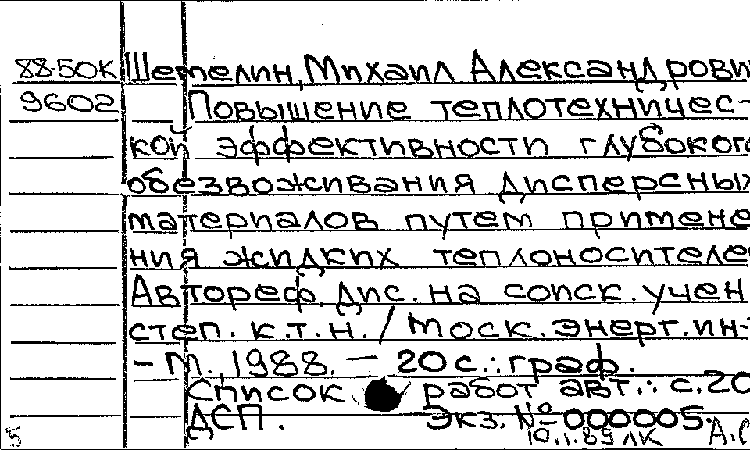 88-50К Шетелин, Михаил Александрови
9602 Повышение теплотехничес-
кой эффективности глубокого
обезвоживания дисперсных
материалов путем примене
ния жидких теплоносителе
Автореф. дис. на соиск. учен
степ. к.т.н. / Моск. энерг. ин-
- М., 1988. - 20 с.: граф.
Список работ авт.: с. 20
ДСП. Экз. № 000005.
5 10.1.89 ЛК А.